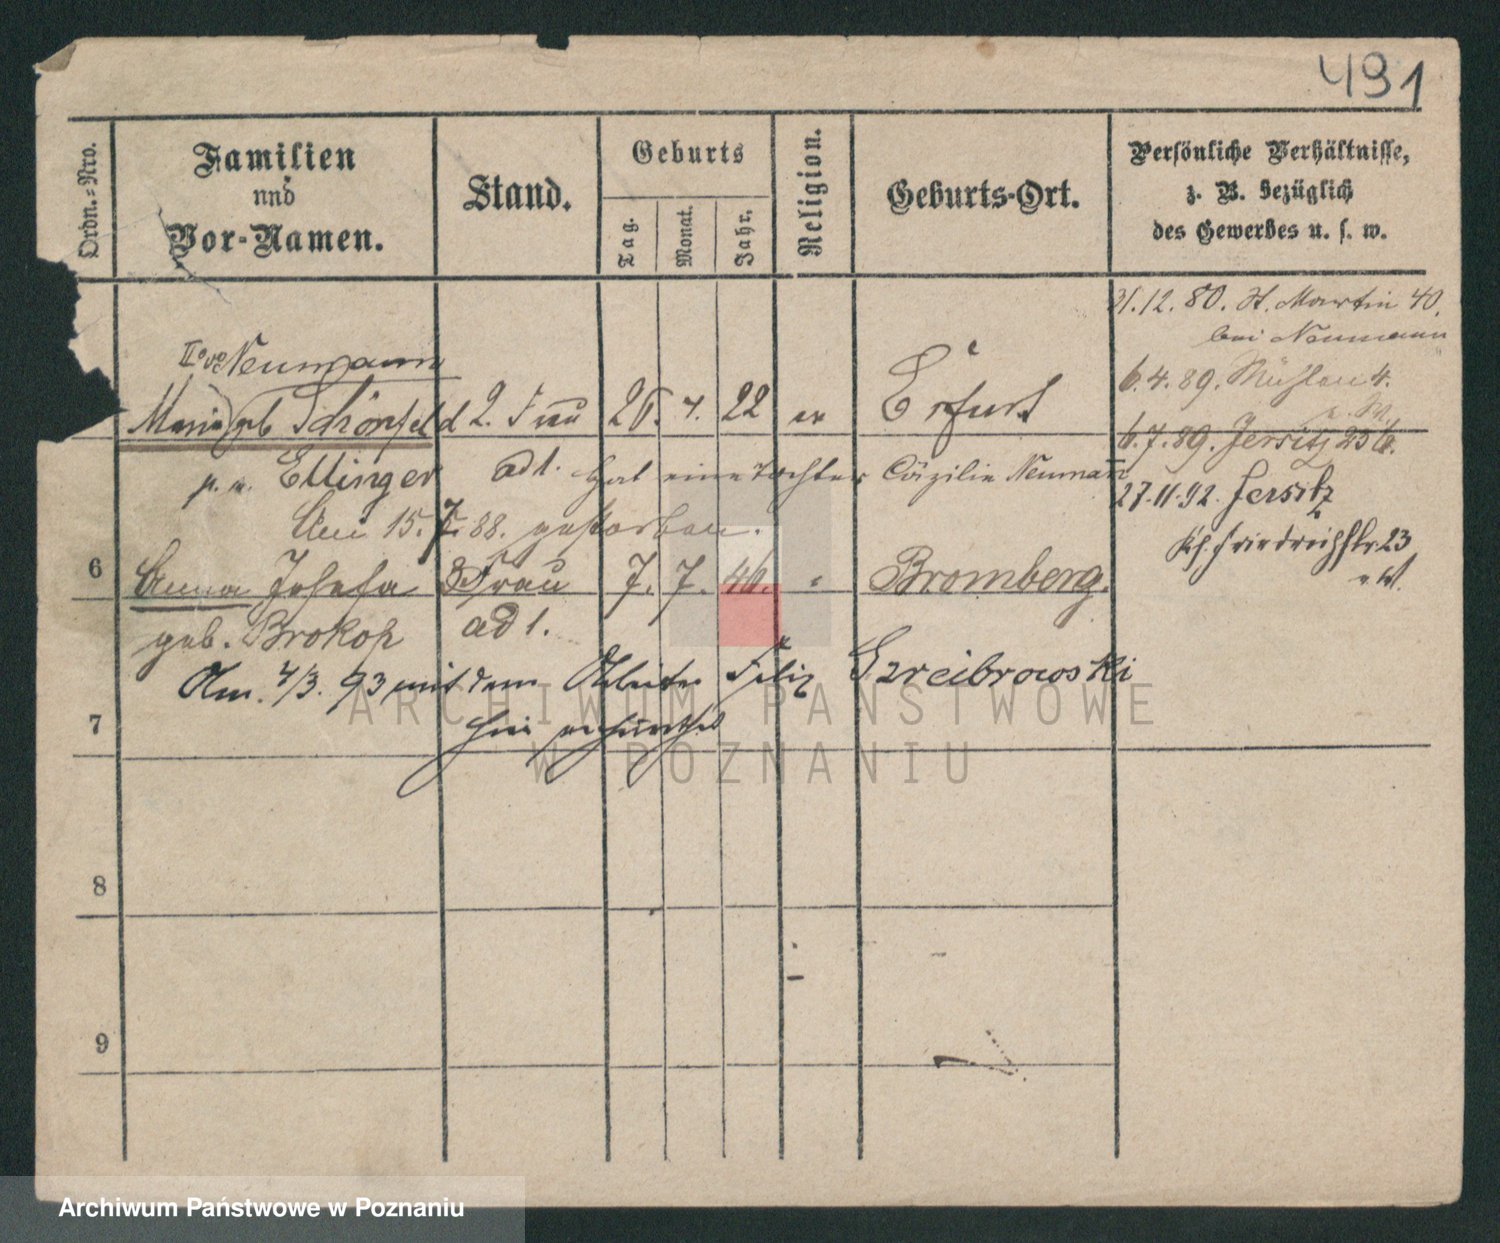 491
Ordn.-Nro.
Familien
und
Vor-Namen.
Stand.
Geburts
Tag.
Monat.
Jahr.
Religion.
Geburts-Ort.
Persönliche Verhältnisse,
z. B. bezüglich
des Gewerbes u. s. w.
31.12.80. St. Martin 40.
bei Neumann
II Neumann
6.4.89. Mühlen 4.
Maria geb Schönfeld 2. Frau 26. 4. 22 ev Erfurt
6.7.89. Jersitz 25b.
Ellinger ad 1. hat eine Tochter Cäzilie Neumann
27.11.92. Jersitz
Am 15. 88. gestorben.
Friedrichstr. 23
6 Anna Josefa 3 Frau 7. 7. 46. " Bromberg.
geb. Brokop ad 1.
Am. 4/3. 93 mit dem Arbeiter Felix Szreibrowski
7 hier
8
9
ARCHIWUM PAŃSTWOWE
W POZNANIU
Archiwum Państwowe w Poznaniu